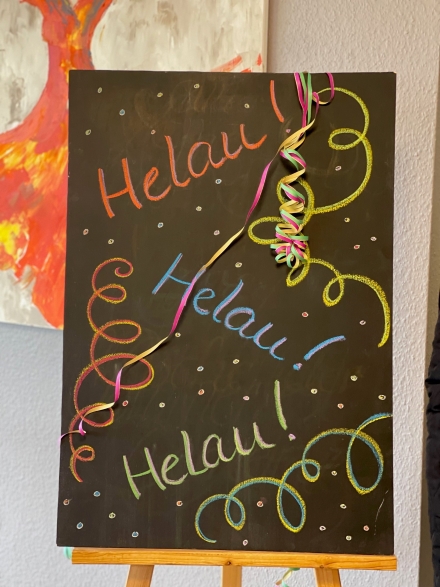 Helau!
Helau!
Helau!